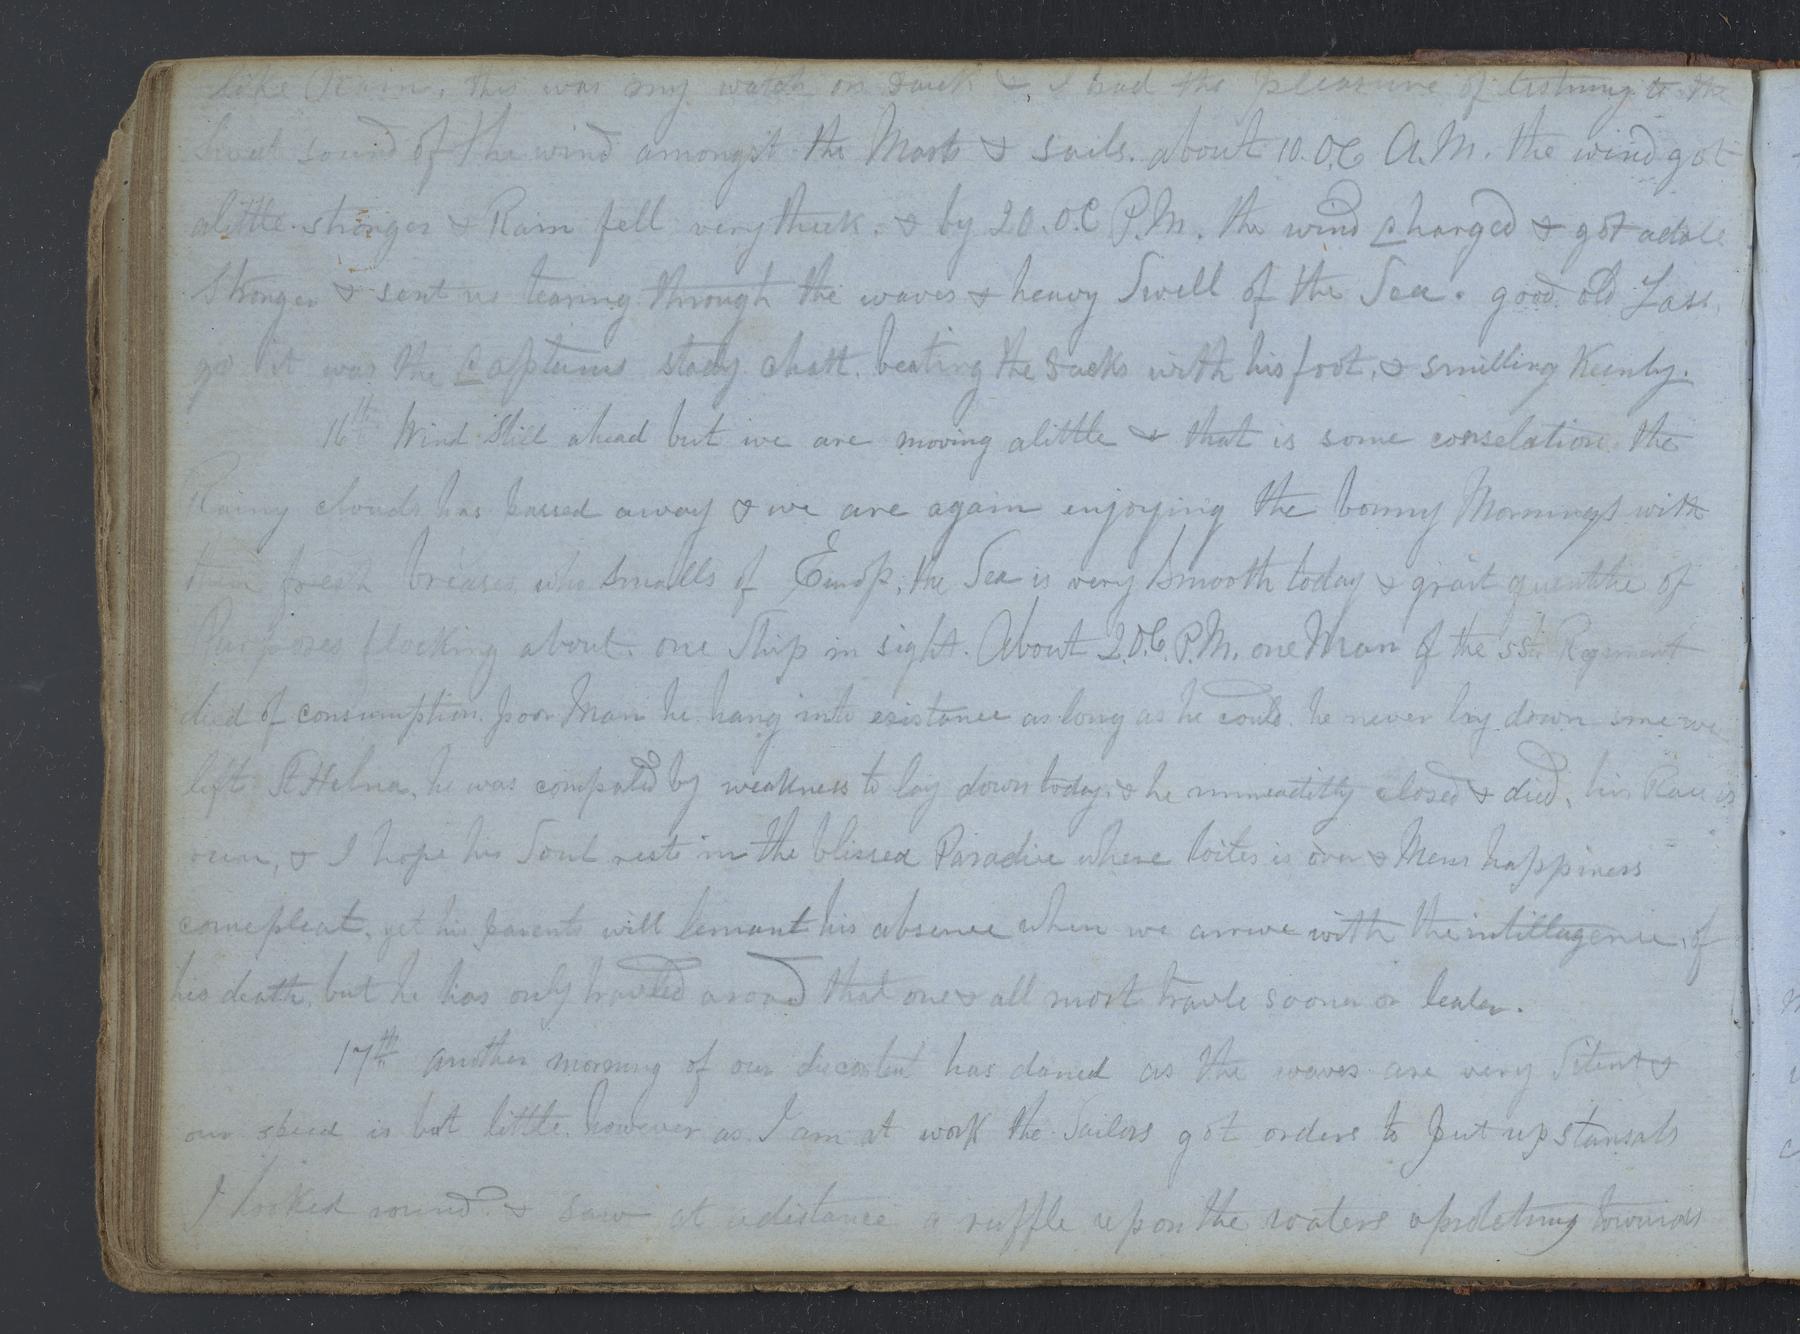 like Rain, this was my watch on dack & I had the pleasure of listning to the
Sweet sound of the wind amongst the Masts & sails. about 10.OC A.M. the wind got
alittle stronger & Rain fell very thick. & by 20.O.C P.M. the wind Charged & got adale
Stronger & sent us tearing through the waves & heavy Swell of the Sea. good old Lass,
go it was the Captains study chatt. beating the dacks with his foot, & smilling Keenly.
16th Wind Still ahead but we are moving alittle & that is some conselation. the
Rainy clouds has passed away & we are again enjoying the bonny Mornings with
them fresh breases who smalls of Europ, the Sea is very Smooth today & grait quentitie of
Purposes flocking about. one Ship in sight. About 2.O.C. P.M. one Man of the 55th Regiment
died of consumption. poor Man he hang into existance as long as he could. he never lay down since we
left St Helna, he was compaled by weakness to lay down today & he immeaditly closed & died, his Race is
run, & I hope his Soul rests in the blissed Paradice where toiles is over & Mens happiness
comepleat, yet his parents will lemant his absence when we arrive with the intillagence, of
his death, but he has only travled aroad that one & all most travle sooner or leater.
17th another morning of our has daned as the waves are very Silent &
our speed is but little. however as I am at work the Sailors got orders to put up stansals
I looked round & saw at adistance a ruffle upon the waters towards